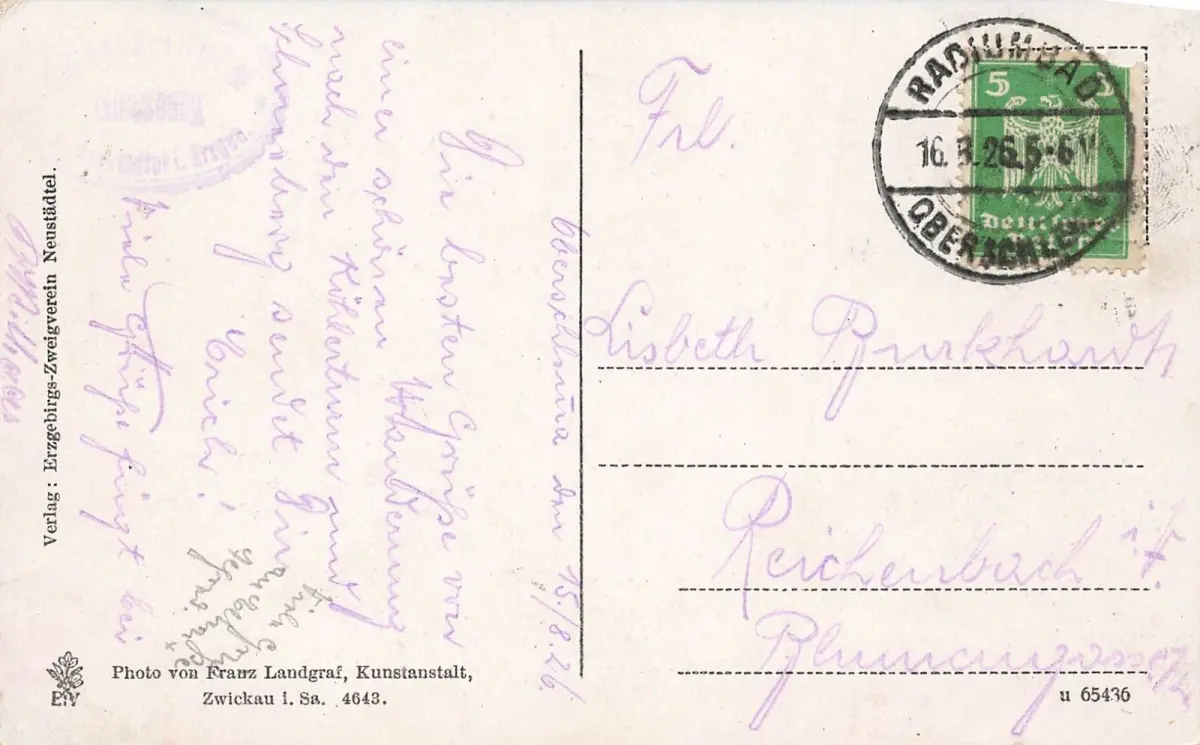 Oberschlema den 15./8.26.
Die besten Grüße von
einer schönen Wanderung
nach den Köhlerturm und
Schneeberg sendet Dir
Erich!
Viele Grüße fügt bei
Frl.
Lisbeth Burkhardt
Reichenbach i/V.
Blumengasse
RADIUMBAD
16.8.26.5-6
OBERSCHLEMA
5 5
Deutsches
Verlag: Erzgebirgs-Zweigverein Neustädtel.
Photo von Franz Landgraf, Kunstanstalt,
Zwickau i. Sa. 4643.
u 65436